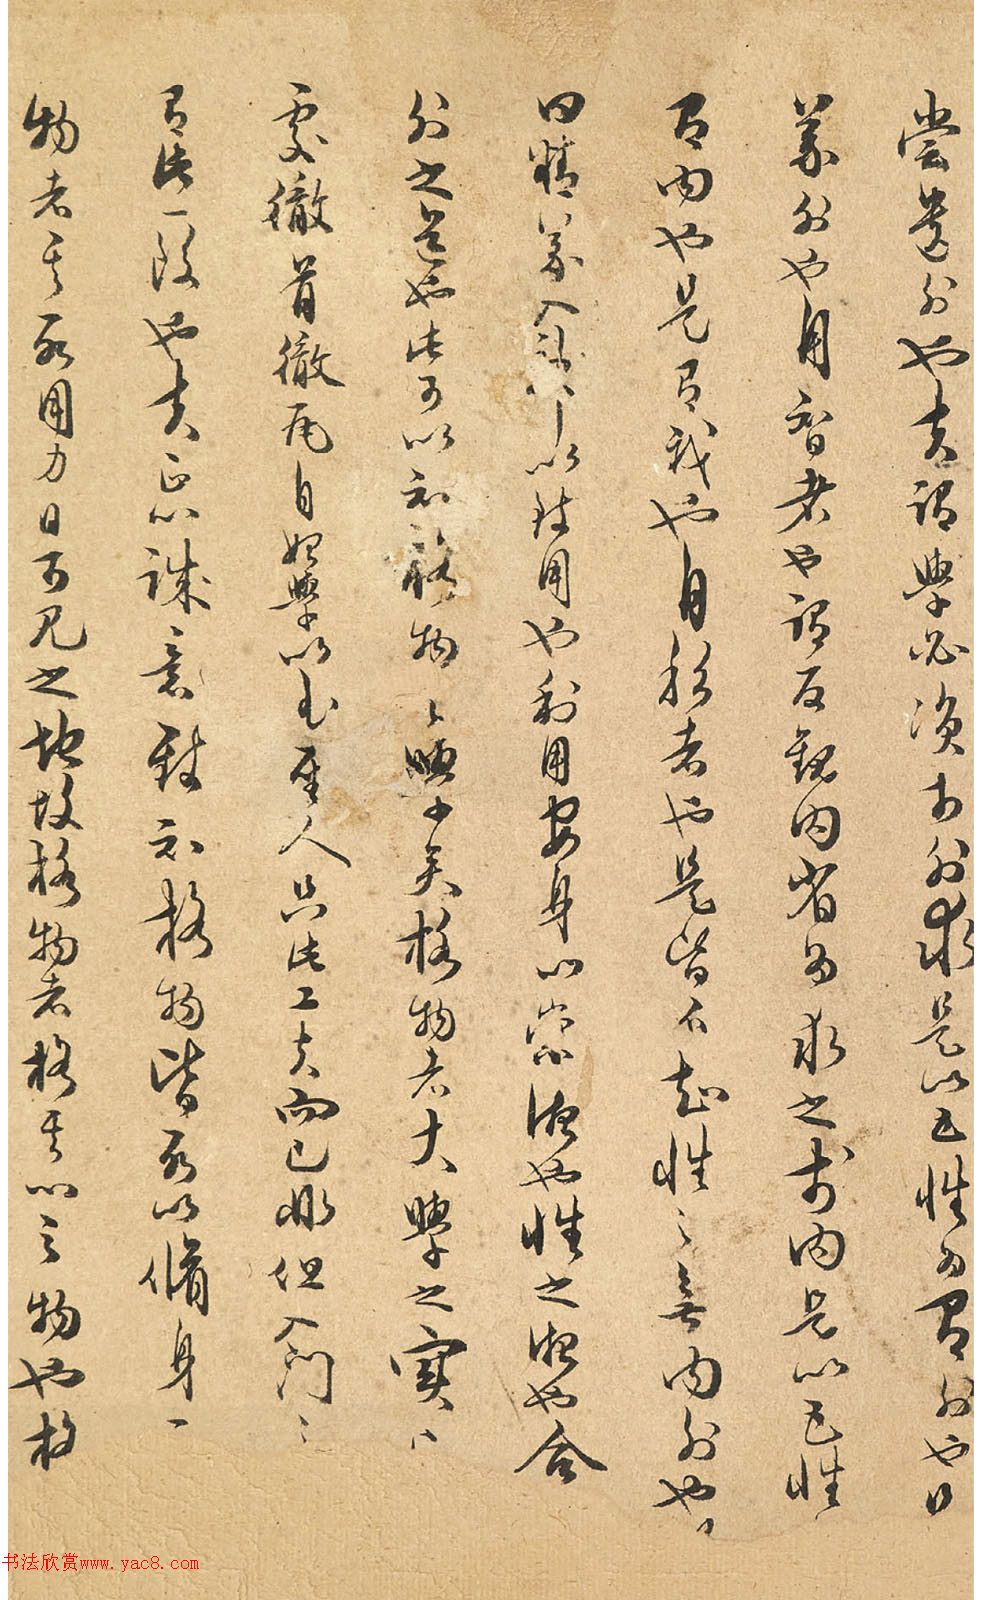 嘗遺外也夫謂學必資於外求是以己性為有外也
義外也用智者也謂反觀內省為求之於內是以己性
有內也是有我也自私者也是皆不知性之無內外也
曰精義入神以致用也利用安身以崇德也性之德也合
外之道也此可以知格物之學矣格物者大學之實下
處徹首徹尾自始學以至聖人只此工夫而已非但入門之
有此一段也夫正心誠意致知格物皆所以脩身
物者其所用力日可見之地故格物者格其心之物也格
书法欣赏www.yac8.com